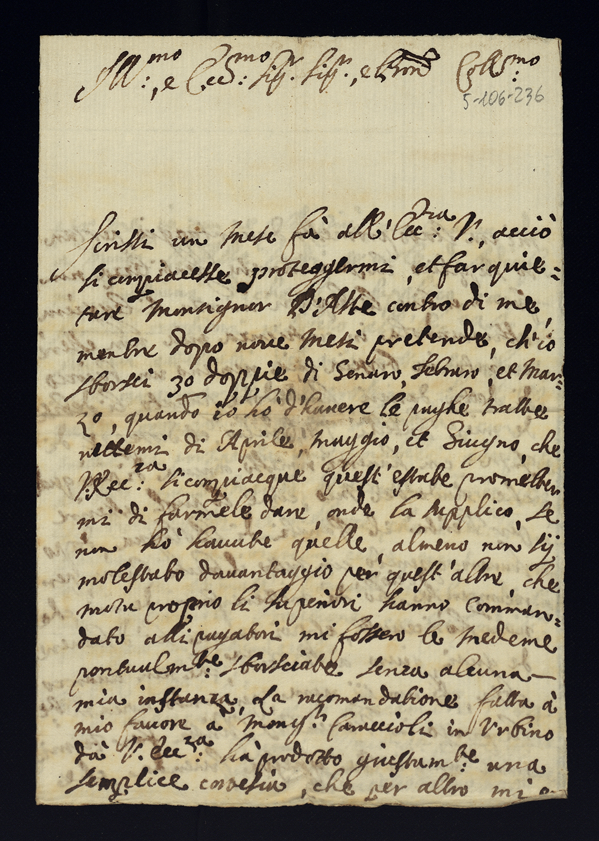 Ill:mo, e Ecc:mo Sig.r Sig.r, e Pron Coll:mo
5-106-236
Scrissi un mese fà all'Ecc:za V., acciò
si compiacesse proteggermi, et far quie=
tare Monsignor D'Aste contro di me,
mentre dopo nove mesi pretende, ch'io
sborsci 30 doppie di Genaro, Febraro, et Mar=
zo, quando io hò d'havere le paghe tratte
nuttemi di Aprile, Maggio, et Giugno, che
V. Ecc:za si compiacque quest'estate prometter
mi di farmele dare, onde la supplico, se
non hò havute quelle, almeno non sij
molestato davantaggio per quest'altre, che
motu proprio li superiori hanno comman=
dato alli pagatori mi fossero le medeme
pontualm:te sborsciate senza alcuna
mia instanza, La racomandatione fatta à
mio favore à Mons.r Caraccioli in Urbino
dà V. Ecc:za hà prodotto giustam:te una
semplice cortesia, che per altro mi